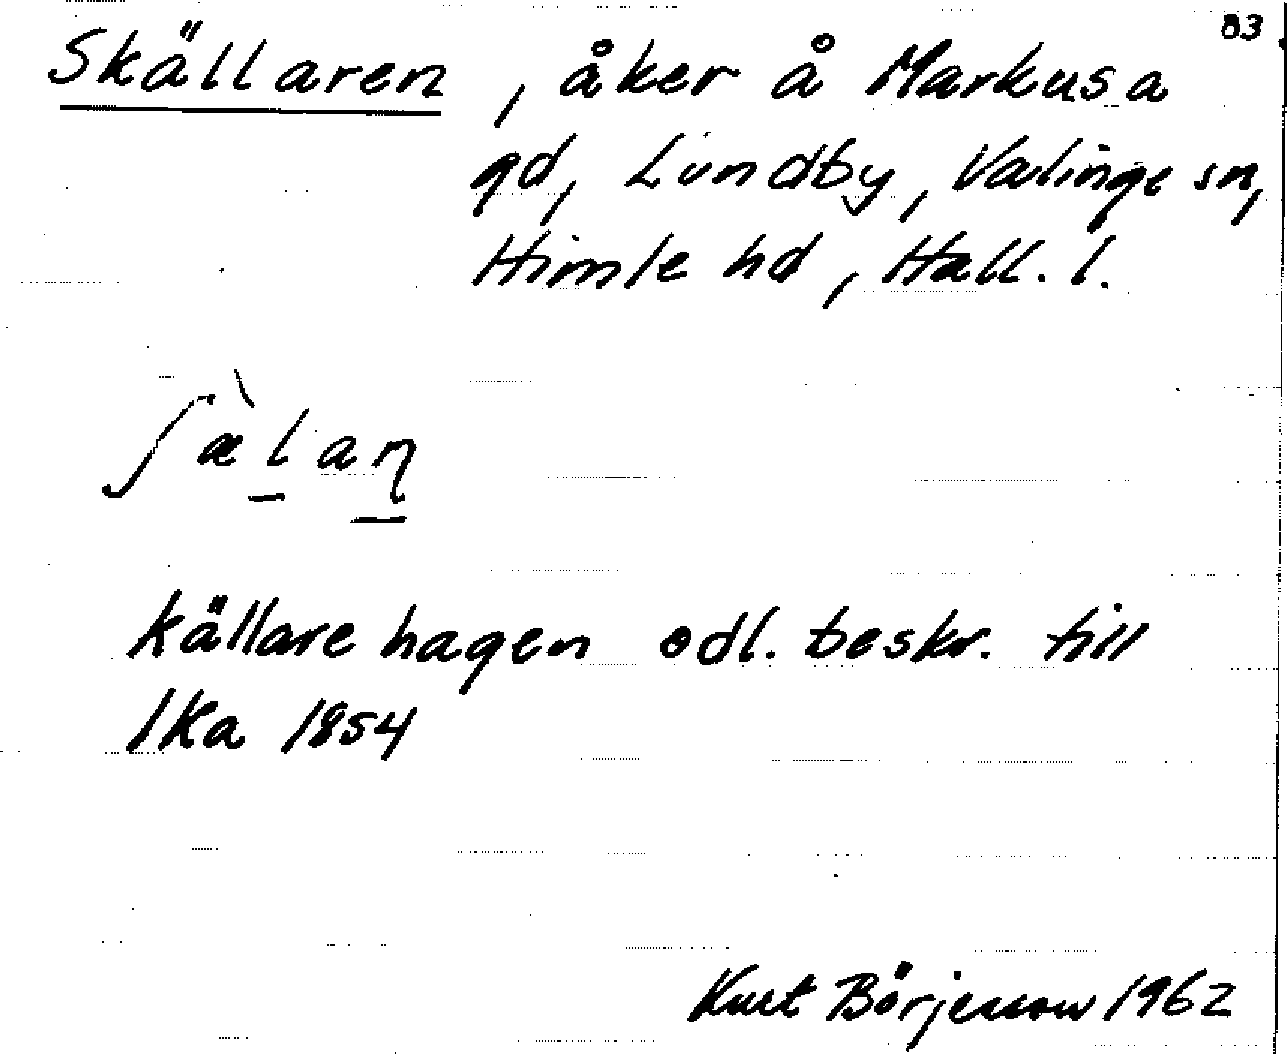 83
Skällaren, åker å Markusa
gd, Lundby, Valinge sn,
Himle hd, Hall. l.
ʃæ̀lan̠
källare hagen odl. beskr. till
lKa 1854
Kurt Börjesson 1962